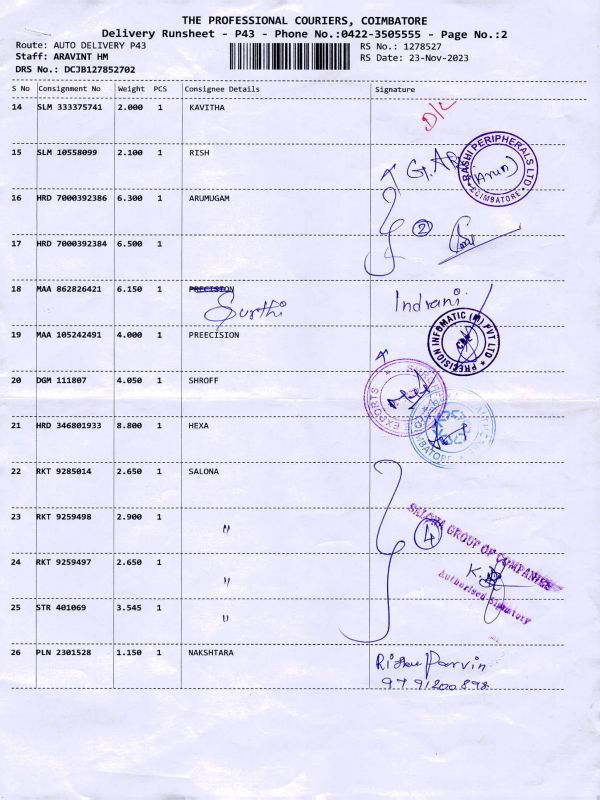 THE PROFESSIONAL COURIERS, COIMBATORE
Delivery Runsheet - P43 - Phone No.:0422-3505555 - Page No.:2
Route: AUTO DELIVERY P43 RS No.: 1278527
Staff: ARAVINT HM RS Date: 23-Nov-2023
DRS No.: DCJB127852702
S No Consignment No Weight PCS Consignee Details Signature
14 SLM 333375741 2.000 1 KAVITHA D/L
15 SLM 10558099 2.100 1 RISH
RASHI PERIPHERALS LTD COIMBATORE
(Arun)
16 HRD 7000392386 6.300 1 ARUMUGAM
2
17 HRD 7000392384 6.500 1
18 MAA 862826421 6.150 1 PRECISION Indrani
Surthi
19 MAA 105242491 4.000 1 PREECISION
PRECISION INFOMATIC (M) PVT LTD
CBE
20 DGM 111807 4.050 1 SHROFF
EXPORTS
21 HRD 346801933 8.800 1 HEXA
22 RKT 9285014 2.650 1 SALONA
23 RKT 9259498 2.900 1 "
4
SALONA GROUP OF COMPANIES
24 RKT 9259497 2.650 1 "
Authorised Signatory
25 STR 401069 3.545 1 "
26 PLN 2301528 1.150 1 NAKSHTARA